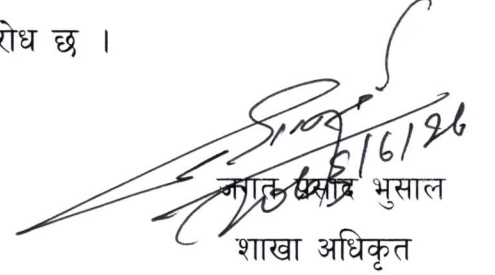 रोध छ ।
जगत प्रसाद भुसाल
शाखा अधिकृत